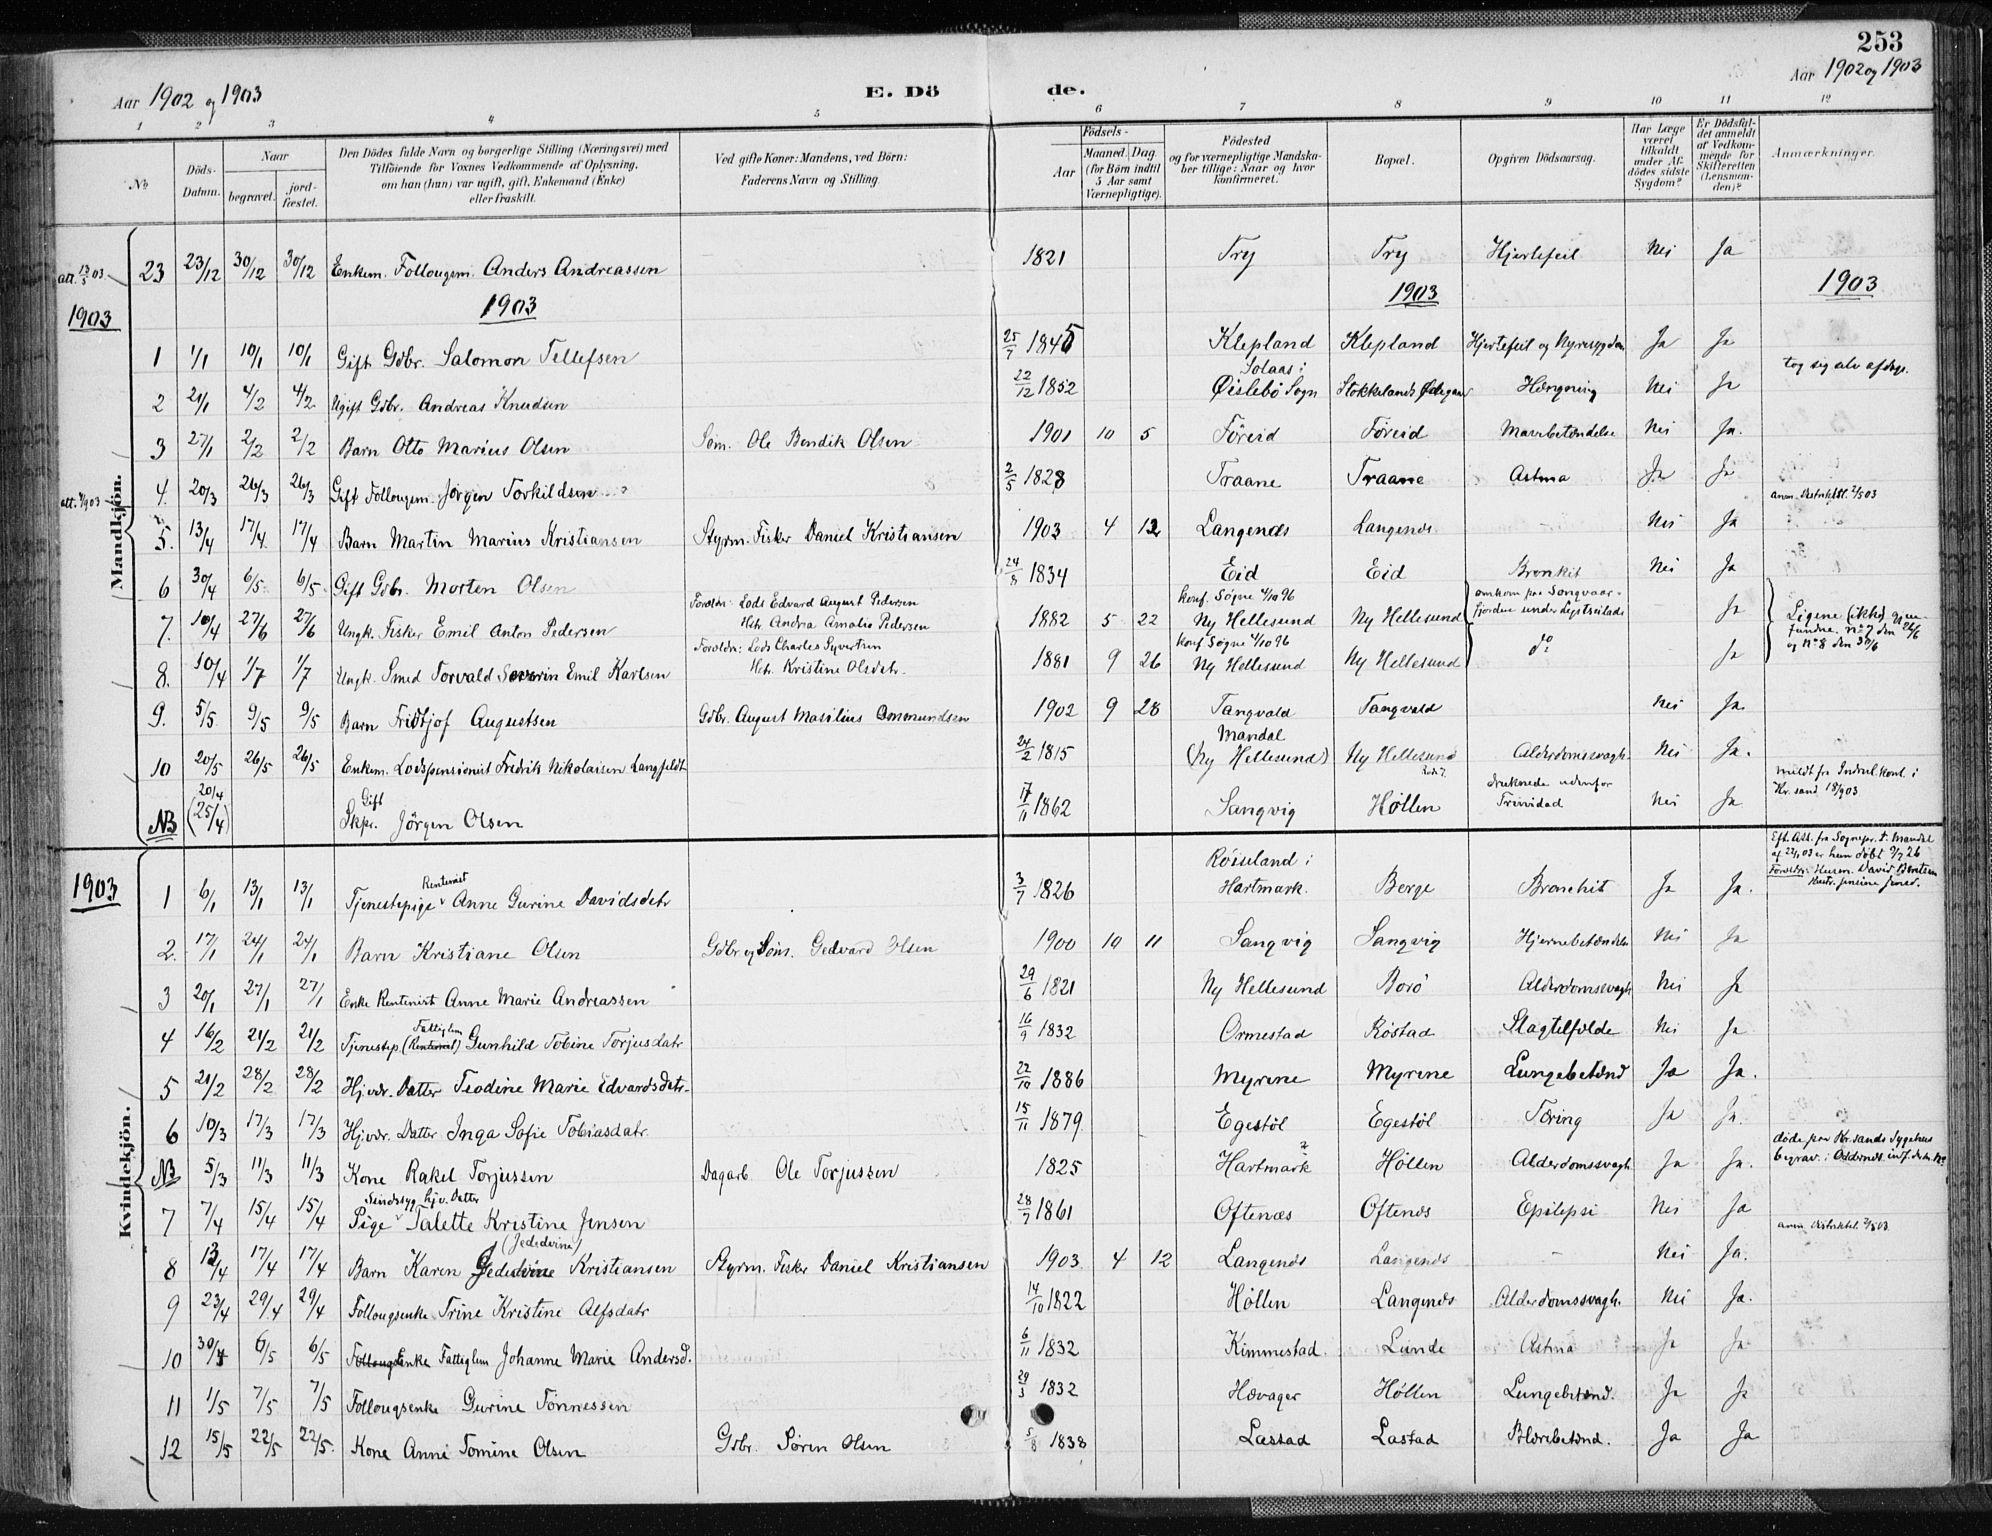 253
Aar 1902 og 1903
E. Dö de.
Aar 1902 og 1903
1 2 3 4 5 6 7 8 9 10 11 12
No
Döds-Datum.
Naar
begravet.
jord-fæstet.
Den Dödes fulde Navn og borgerlige Stilling (Næringsvei) med Tilföiende for Voxnes Vedkommende af Oplysning, om han (hun) var ugift, gift, Enkemand (Enke) eller fraskilt.
Ved gifte Koner: Mandens, ved Börn: Faderens Navn og Stilling.
Födsels-
Aar
Maaned. Dag.
(for Börn indtil 5 Aar samt Værnepligtige).
Födested og for værnepligtige Mandskaber tillige: Naar og hvor konfirmeret.
Bopæl.
Opgiven Dödsaarsag.
Har Læge været tilkaldt under Afdödes sidste Sygdom?
Er Dödsfaldet anmeldt af Vedkommende for Skifteretten (Lensmanden)?
Anmærkninger.
Mandkjön.
att. 13/3 03 23 23/12 30/12 30/12 Enkem. Follougsm. Anders Andreassen 1821 Try Try Hjertefeil Nei Ja
1903 1903 1903 1903
1 1/1 10/1 10/1 Gift Gdbr. Salomon Tellefsen 25/7 1845 Klepland Klepland Hjertefeil og Nyresygdom Ja Ja
2 21/1 4/2 4/2 Ugift Gdbr. Andreas Knudsen 22/12 1852 Solaas i Øislebö Sogn Stokkelands Ødegaard Hængning Nei Ja tog sig selv afdage.
3 27/1 2/2 2/2 Barn Otto Marius Olsen Söm. Ole Bendik Olsen 1901 10 5 Föreid Föreid Mavebetændelse Nei Ja.
4. 20/3 26/3 26/3 Gift Follougsm. Jörgen Torkildsen 2/5 1828 Traane Traane Astma Ja Ja
5. 13/4 17/4 17/4 Barn Martin Marius Kristiansen Styrm. Fisker Daniel Kristiansen 1903 4 12 Langenæs Langenæs Nei Ja anm. Distriktsl. 2/5 03
6 30/4 6/5 6/5 Gift Gdbr. Morten Olsen 24/8 1834 Eid Eid Bronkit Nei Ja
7. 10/4 27/6 27/6 Ungk. Fisker Emil Anton Pedersen Foreldr: Lods Edvard August Pedersen Hstr. Andra Amalie Pedersen 1882 5 22 konf. Søgne 4/10 96 Ny Hellesund Ny Hellesund omkom paa Songvaarfjorden under Lystseilads Ja Ligene (ikke) gjenfundne. No 7 den 26/6 og No 8 den 30/6
8. 10/4 1/7 1/7 Ungk. Smed Torvald Severin Emil Karlsen Foreldr: Lods Charles Syvertsen Hstr. Kristine Olsdtr. 1881 9 26 konf Søgne 4/10 96 Ny Hellesund Ny Hellesund do Ja
9. 5/5 9/5 9/5 Barn Fridtjof Augustsen Gdbr. August Masilius Ommundsen 1902 9 28 Tangvald Tangvald Nei Ja
10 20/5 26/5 26/5 Enkem. Lodspensionist Fredrik Nikolaisen Langfeldt 24/2 1815 Mandal (Ny Hellesund) Ny Hellesund Alderdomssvagh. Nei Ja.
NB 20/4 (25/4) Gift Skpr. Jörgen Olsen 17/11 1862 Sangvig Høllen druknede udenfor Trinidad Nei Ja meldt fr. Indrul.kont. i Kr.sand 18/9 03
Kvindekjön.
1903 1 6/1 13/1 13/1 Tjenestepige Rentenist Anne Gurine Davidsdtr 3/7 1826 Röiseland i Hartmark. Berge Bronchit Ja Ja. Eft. Att. fra Sognepr. t. Mandal af 22/1 03 er hun döbt 9/7 26 Foreldr: Husm. David Bentsen Hustr. Jensine Jensd.
2. 17/1 24/1 24/1 Barn Kristiane Olsen Gdbr og Söm. Gedvard Olsen 1900 10 11 Sangvig Sangvig Hjernebetændelse Nei Ja
3 20/1 27/1 27/1 Enke Rentenist Anne Marie Andreassen 29/6 1821 Ny Hellesund Borö Alderdomssvagh Nei Ja
4 16/2 21/2 21/2 Tjenestep (Rentenist) Fattiglem Gunhild Tobine Torjusdatr 16/9 1832 Ormestad Röstad Slagtilfælde Nei Ja
5 21/2 28/2 28/2 Hjvær. Datter Teodine Marie Edvardsdatr. 22/10 1886 Myrene Myrene Lungebetænd Ja Ja.
6 10/3 17/3 17/3 Hjvær. Datter Inga Sofie Tobiasdatr. 15/11 1879 Egestöl Egestöl Tæring Ja Ja.
NB 5/3 11/3 11/3 Kone Rakel Torjussen Dagarb. Ole Torjussen 1825 Hartmark Høllen Alderdomssvagh Ja Ja. døde paa Kr.sands Sygehus begrav. i Oddernæs
7 7/4 15/4 15/4 Sindssyg hjv. Datter Pige Talette Kristine Jensen 28/7 1861 Oftenæs Oftenæs Epilepsi Nei Ja
8 13/4 17/4 17/4 Barn Karen Jededvine (Jededvine) Kristiansen Styrm. Fisker Daniel Kristiansen 1903 4 12 Langenæs Langenæs - Nei Ja. anm. Distriktsl. 2/5 03
9 23/4 29/4 29/4 Follougsenke Trine Kristine Alfsdatr 14/10 1822 Høllen Langenæs Alderdomssvagh. Nei Ja.
10 30/4 6/5 6/5 Follougs Enke Fattiglem Johanne Marie Andersd. 6/11 1832 Kimmestad. Lunde Astma Ja Ja
11 1/5 7/5 7/5 Follougsenke Gurine Tönnessen 29/3 1832 Hævager Høllen Lungebetænd. Ja Ja
12 15/5 22/5 22/5. Kone Anne Tomine Olsen Gdbr. Sören Olsen 5/8 1838 Lastad Lastad Blærebetænd. Ja Ja